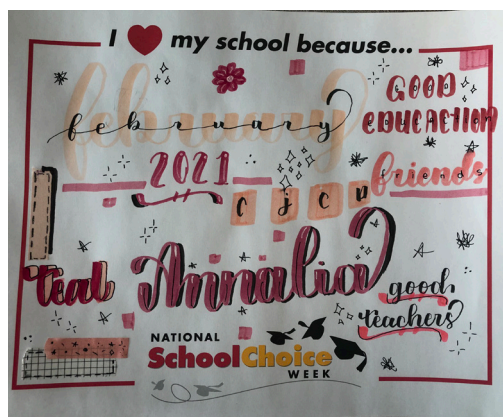 I ❤ my school because...
GOOD
EDUCATION
february
2021
friends
c j c p
Teal
Annalia
good
teachers
NATIONAL
SchoolChoice
WEEK